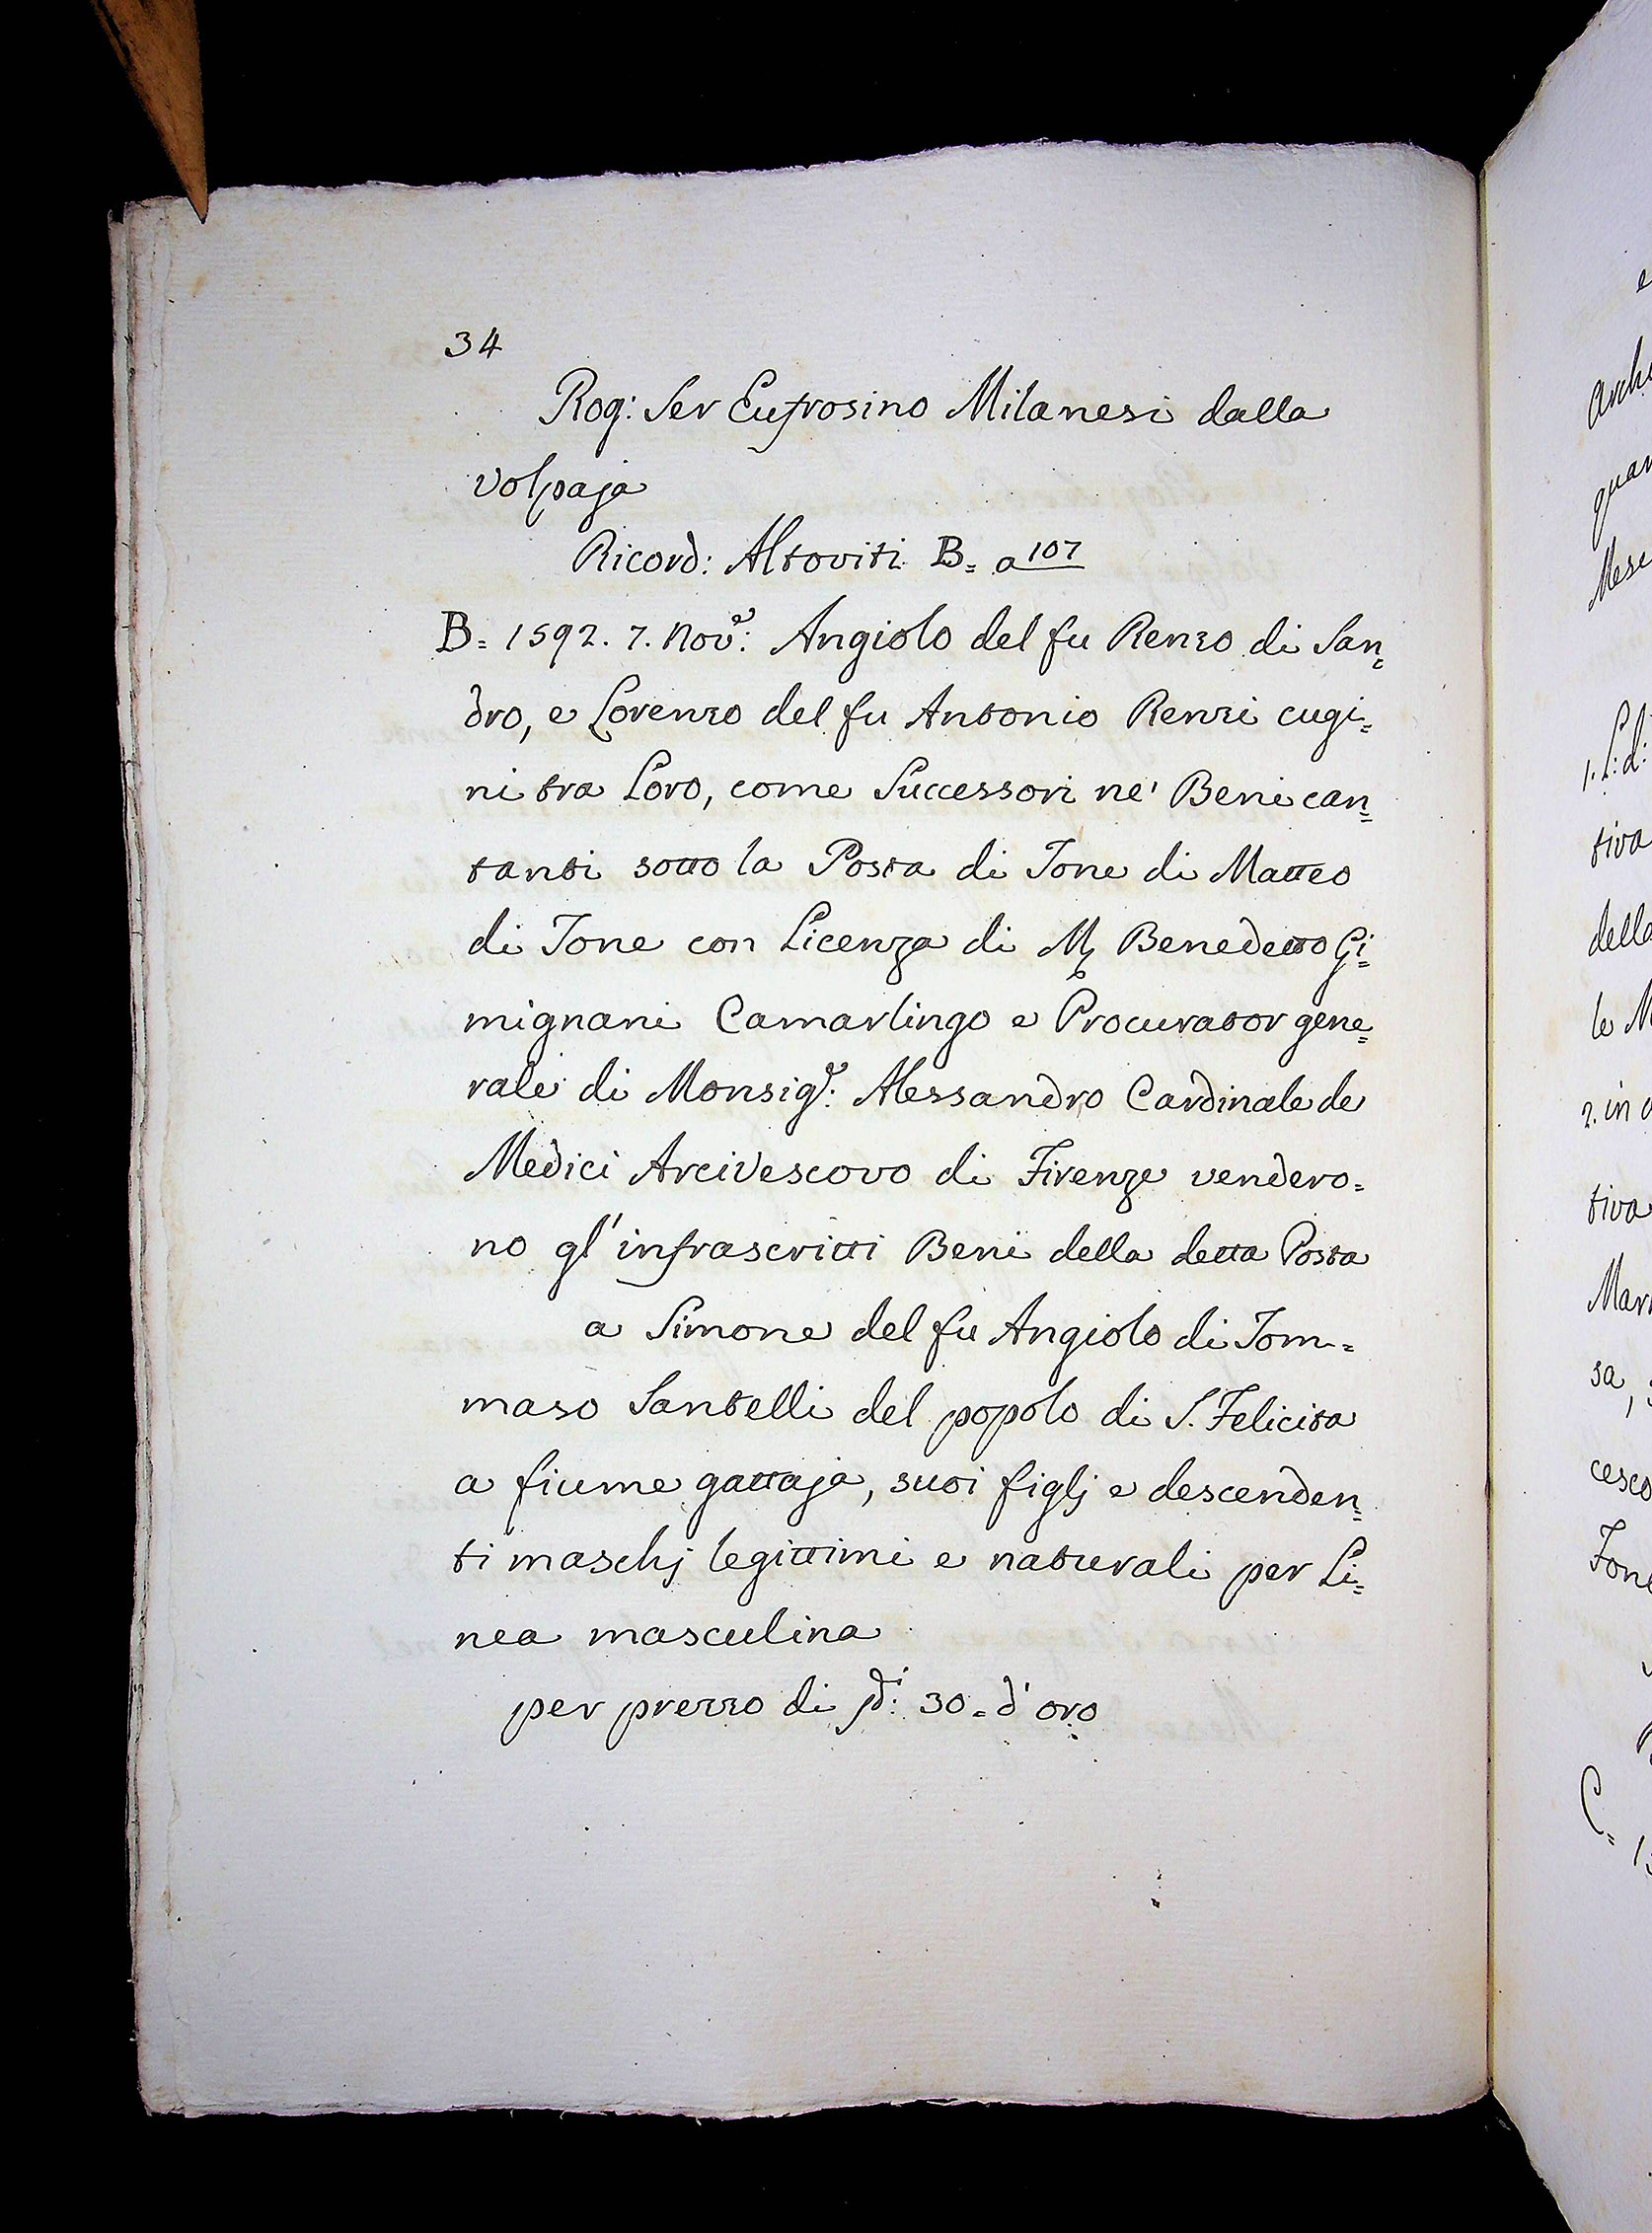 34
Rog: Ser Eufrosino Milanesi dalla
Volpaja
Ricord: Altoviti B= a 107
B= 1592. 7. Nov.e: Angiolo del fu Renzo di San=
dro, e Lorenzo del fu Antonio Renzi cugi=
ni tra Loro, come Successori ne' Beni can=
tanti sotto la Posta di Tone di Matteo
di Tone con Licenza di M Benedetto Gi=
mignani Camarlingo e Procurator gene=
rale di Monsig.r: Alessandro Cardinale de
Medici Arcivescovo di Firenze vendero=
no gl'infrascritti Beni della detta Posta
a Simone del fu Angiolo di Tom=
maso Santelli del popolo di S. Felicita
a fiume gattaja, suoi figlj e descenden=
ti maschj legittimi e naturali per Li=
nea masculina
per prezzo di 30= d'oro
e
Arch
quan
Mese
1. L: d:
tiva
della
le M
2. in
tiva
Mar
sa,
cesco
Tone
C=